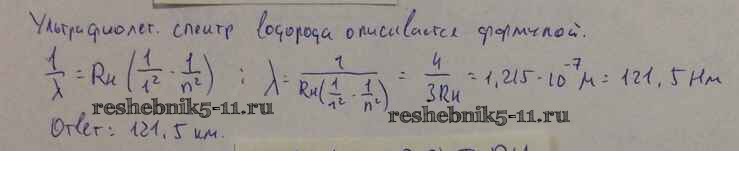 Ультрафиолет. спектр водорода описывается формулой.
1/λ = Rн (1/1² · 1/n²) ; λ = 1/(Rн(1/1² · 1/n²)) = 4/(3Rн) = 1,215·10⁻⁷ м = 121,5 нм
reshebnik5-11.ru
reshebnik5-11.ru
Ответ: 121,5 нм.